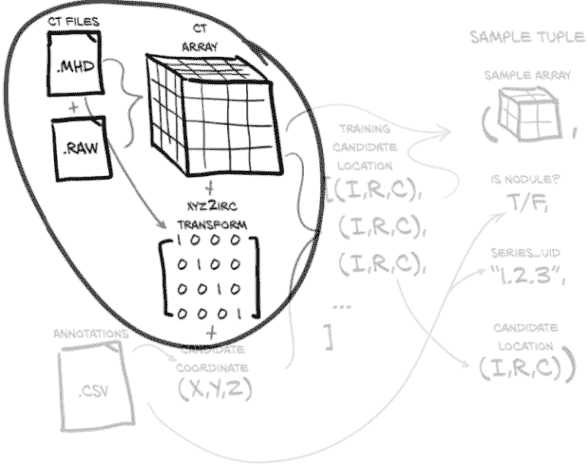 CT FILES
.MHD
+
.RAW
CT
ARRAY
+
XYZ2IRC
TRANSFORM
[1 0 0 0
0 1 0 0
0 0 1 0
0 0 0 1]
+
ANNOTATIONS
.CSV
CANDIDATE
COORDINATE
(X,Y,Z)
TRAINING
CANDIDATE
LOCATION
[(I,R,C),
(I,R,C),
(I,R,C),
...
]
SAMPLE TUPLE
SAMPLE ARRAY
( ,
IS NODULE?
T/F,
SERIES_UID
"1.2.3",
CANDIDATE
LOCATION
(I,R,C))